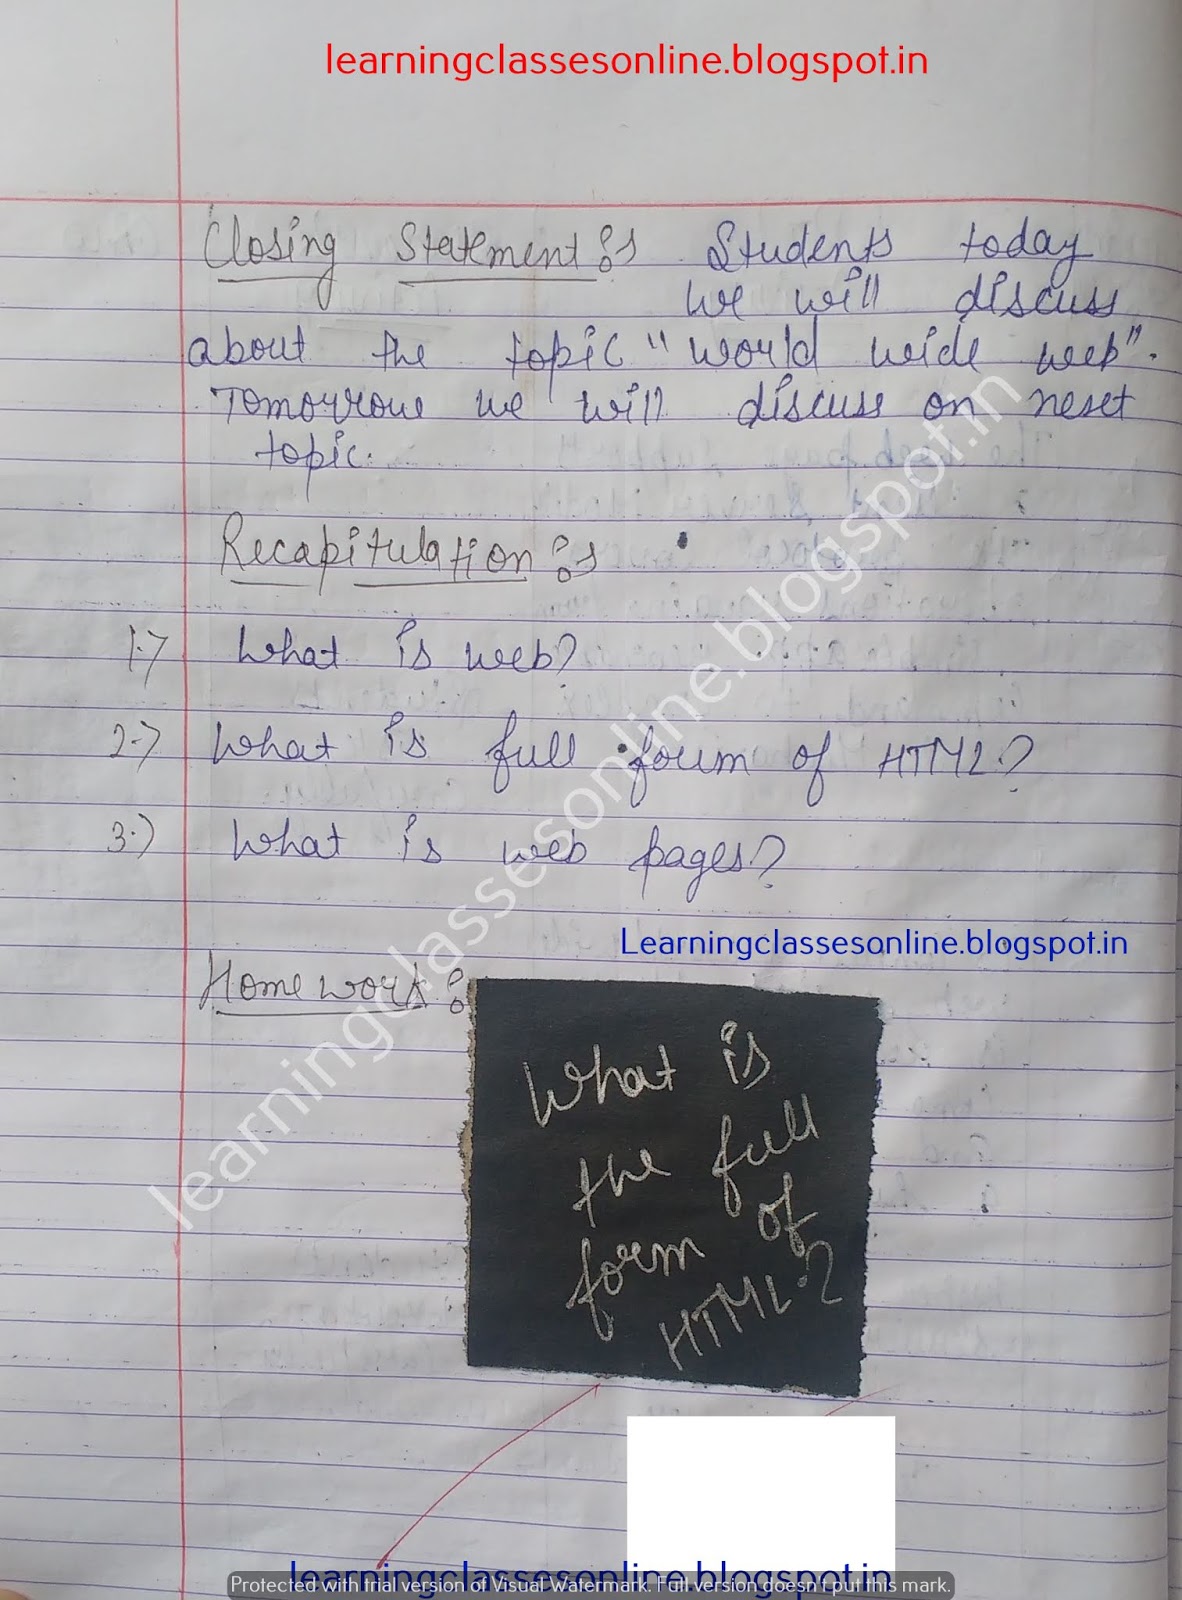 learningclassesonline.blogspot.in
Closing Statement:- Students today
we will discuss
about the topic "world wide web".
Tomorrow we will discuss on next
topic.
Recapitulation:-
1.) What is web?
2.) What is full form of HTML?
3.) What is web pages?
Learningclassesonline.blogspot.in
Homework:
What is
the full
form of
HTML?
learningclassesonline.blogspot.in
learningclassesonline.blogspot.in
Protected with trial version of Visual Watermark. Full version doesn't put this mark.